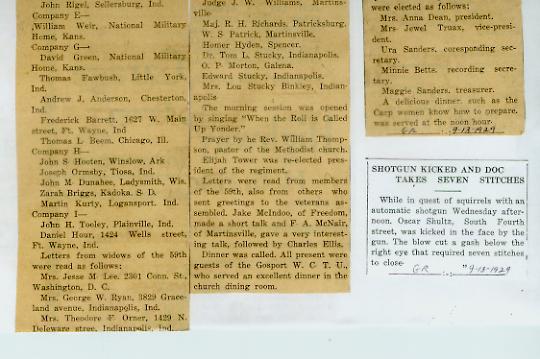 John Rigel, Sellersburg, Ind.
Company E—
William Weir, National Military
Home, Kans.
Company G—
David Green, National Military
Home, Kans.
Thomas Fawbush, Little York,
Ind.
Andrew J. Anderson, Chesterton,
Ind.
Frederick Barrett, 1627 W. Main
street, Ft. Wayne, Ind
Thomas L Beem, Chicago, Ill.
Company H—
John S Hooten, Winslow, Ark
Joseph Ormsby, Tiosa, Ind.
John M Dunahee, Ladysmith, Wis.
Zarah Briggs, Kadoka. S D.
Martin Kurty, Logansport, Ind.
Company I—
John H. Tooley, Plainville, Ind.
Daniel Hour, 1424 Wells street,
Ft. Wayne, Ind.
Letters from widows of the 59th
were read as follows:
Mrs. Jesse M Lee. 2301 Conn. St.,
Washington, D. C.
Mrs. George W Ryan, 3829 Grace-
land avenue, Indianapolis, Ind.
Mrs. Theodore F Orner, 1429 N.
Deleware street, Indianapolis, Ind.
Judge J. W. Williams, Martins-
ville.
Maj. R. H. Richards, Patricksburg.
W. S Patrick, Martinsville.
Homer Hyden, Spencer.
Dr. Tom L Stucky, Indianapolis.
O. P Morton, Galena.
Edward Stucky, Indianapolis.
Mrs. Lou Stucky Binkley, Indian-
apolis
The morning session was opened
by singing "When the Roll is Called
Up Yonder."
Prayer by he Rev. William Thomp-
son, pastor of the Methodist church.
Elijah Tower was re-elected pres-
ident of the regiment.
Letters were read from members
of the 59th, also from others who
sent greetings to the veterans as-
sembled. Jake McIndoo, of Freedom,
made a short talk and F A. McNair,
of Martinsville, gave a very interest-
ing talk, followed by Charles Ellis.
Dinner was called. All present were
guests of the Gosport W. C T. U.,
who served an excellent dinner in the
church dining room.
were elected as follows:
Mrs. Anna Dean, president.
Mrs Jewel Truax, vice-presi-
dent.
Ura Sanders, coresponding sec-
retary.
Minnie Betts. recording secre-
tary.
Maggie Sanders. treasurer.
A delicious dinner. such as the
Carp women know how to prepare.
was served at the noon hour.
GR 9-13-1929
SHOTGUN KICKED AND DOC
TAKES SEVEN STITCHES
While in quest of squirrels with an
automatic shotgun Wednesday after-
noon. Oscar Shultz, South Fourth
street, was kicked in the face by the
gun. The blow cut a gash below the
right eye that required seven stitches
to close
GR "9-13-1929